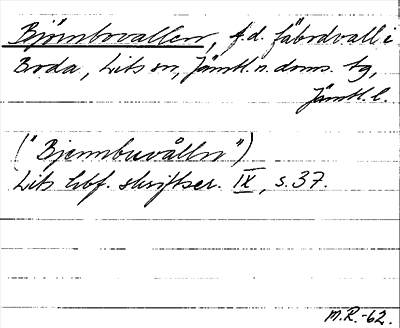 Björnbovallen, f.d. fäbodvall i
Boda, Lits sn, Jämtl. n. doms. tg,
Jämtl. l.
("Bjennbuvålln")
Lits hbf. skriftser. IX, s. 37.
M.R.-62.